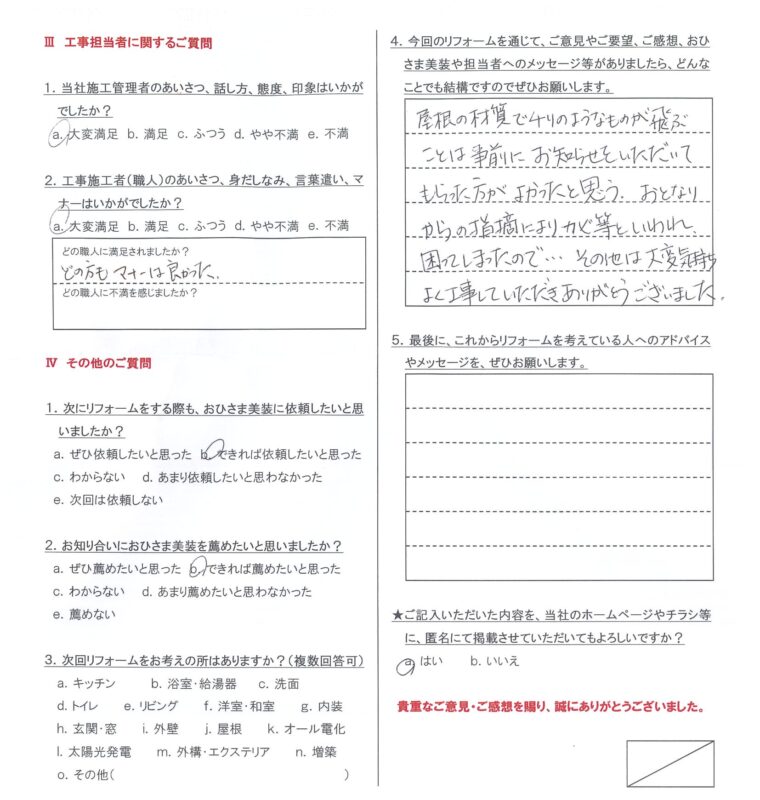 Ⅲ 工事担当者に関するご質問
1. 当社施工管理者のあいさつ、話し方、態度、印象はいかが
でしたか？
a. 大変満足 b. 満足 c. ふつう d. やや不満 e. 不満
2. 工事施工者(職人)のあいさつ、身だしなみ、言葉遣い、マ
ナーはいかがでしたか？
a. 大変満足 b. 満足 c. ふつう d. やや不満 e. 不満
どの職人に満足されましたか？
どの方もマナーは良かった。
どの職人に不満を感じましたか？
Ⅳ その他のご質問
1. 次にリフォームをする際も、おひさま美装に依頼したいと思
いましたか？
a. ぜひ依頼したいと思った b. できれば依頼したいと思った
c. わからない d. あまり依頼したいと思わなかった
e. 次回は依頼しない
2. お知り合いにおひさま美装を薦めたいと思いましたか？
a. ぜひ薦めたいと思った b. できれば薦めたいと思った
c. わからない d. あまり薦めたいと思わなかった
e. 薦めない
3. 次回リフォームをお考えの所はありますか？(複数回答可)
a. キッチン b. 浴室・給湯器 c. 洗面
d. トイレ e. リビング f. 洋室・和室 g. 内装
h. 玄関・窓 i. 外壁 j. 屋根 k. オール電化
l. 太陽光発電 m. 外構・エクステリア n. 増築
o. その他( )
4. 今回のリフォームを通じて、ご意見やご要望、ご感想、おひ
さま美装や担当者へのメッセージ等がありましたら、どんな
ことでも結構ですのでぜひお願いします。
屋根の材質でチリのようなものが飛ぶ
ことは事前にお知らせをいただいて
もらった方がよかったと思う。おとなり
からの指摘によりカビ等といわれ、
困ってしまったので… その他は大変気持ち
よく工事していただきありがとうございました。
5. 最後に、これからリフォームを考えている人へのアドバイス
やメッセージを、ぜひお願いします。
★ご記入いただいた内容を、当社のホームページやチラシ等
に、匿名にて掲載させていただいてもよろしいですか？
a. はい b. いいえ
貴重なご意見・ご感想を賜り、誠にありがとうございました。